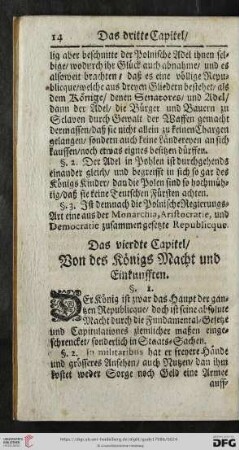 14 Das dritte Capitel/
lig aber beschnitte der Polnische Adel ihnen sel-
bige/ wodurch ihr Glück auch abnahme/ und es
also weit brachten/ daß es eine völlige Repu-
blicque/ welche aus dreyen Gliedern bestehet/ als
dem Könige/ denen Senatoren/ und Adel/
dann der Adel/ die Bürger und Bauern zu
Sclaven durch Gewalt der Waffen gemacht
dermassen/ daß sie nicht allein zu keinen Chargen
gelangen/ sondern auch keine Ländereyen an sich
kauffen/ noch etwas eignes besitzen dürffen.
§. 2. Der Adel in Pohlen ist durchgehends
einander gleich/ und begreifft in sich so gar des
Königs Kinder/ dan die Polen sind so hochmüh-
tig/ daß sie keine Teutschen Fürsten achten.
§. 3. Ist demnach die Polnische Regierungs-
Art eine aus der Monarchia, Aristocratie, und
Democratie zusammen gesetzte Republicque.
Das vierdte Capitel/
Von des Königs Macht und
Einkunfften.
§. 1.
DEr König ist zwar das Haupt der gan-
tzen Republicque/ doch ist seine absolute
Macht durch die Fundamental-Gesetze
und Capitulationes ziemlicher maßen einge-
schrencket/ sonderlich in Staats-Sachen.
§. 2. In militaribus hat er freyere Hände
und grösseres Ansehen/ auch Nutzen/ dan ihm
kostet weder Sorge noch Geld eine Armee
auff/